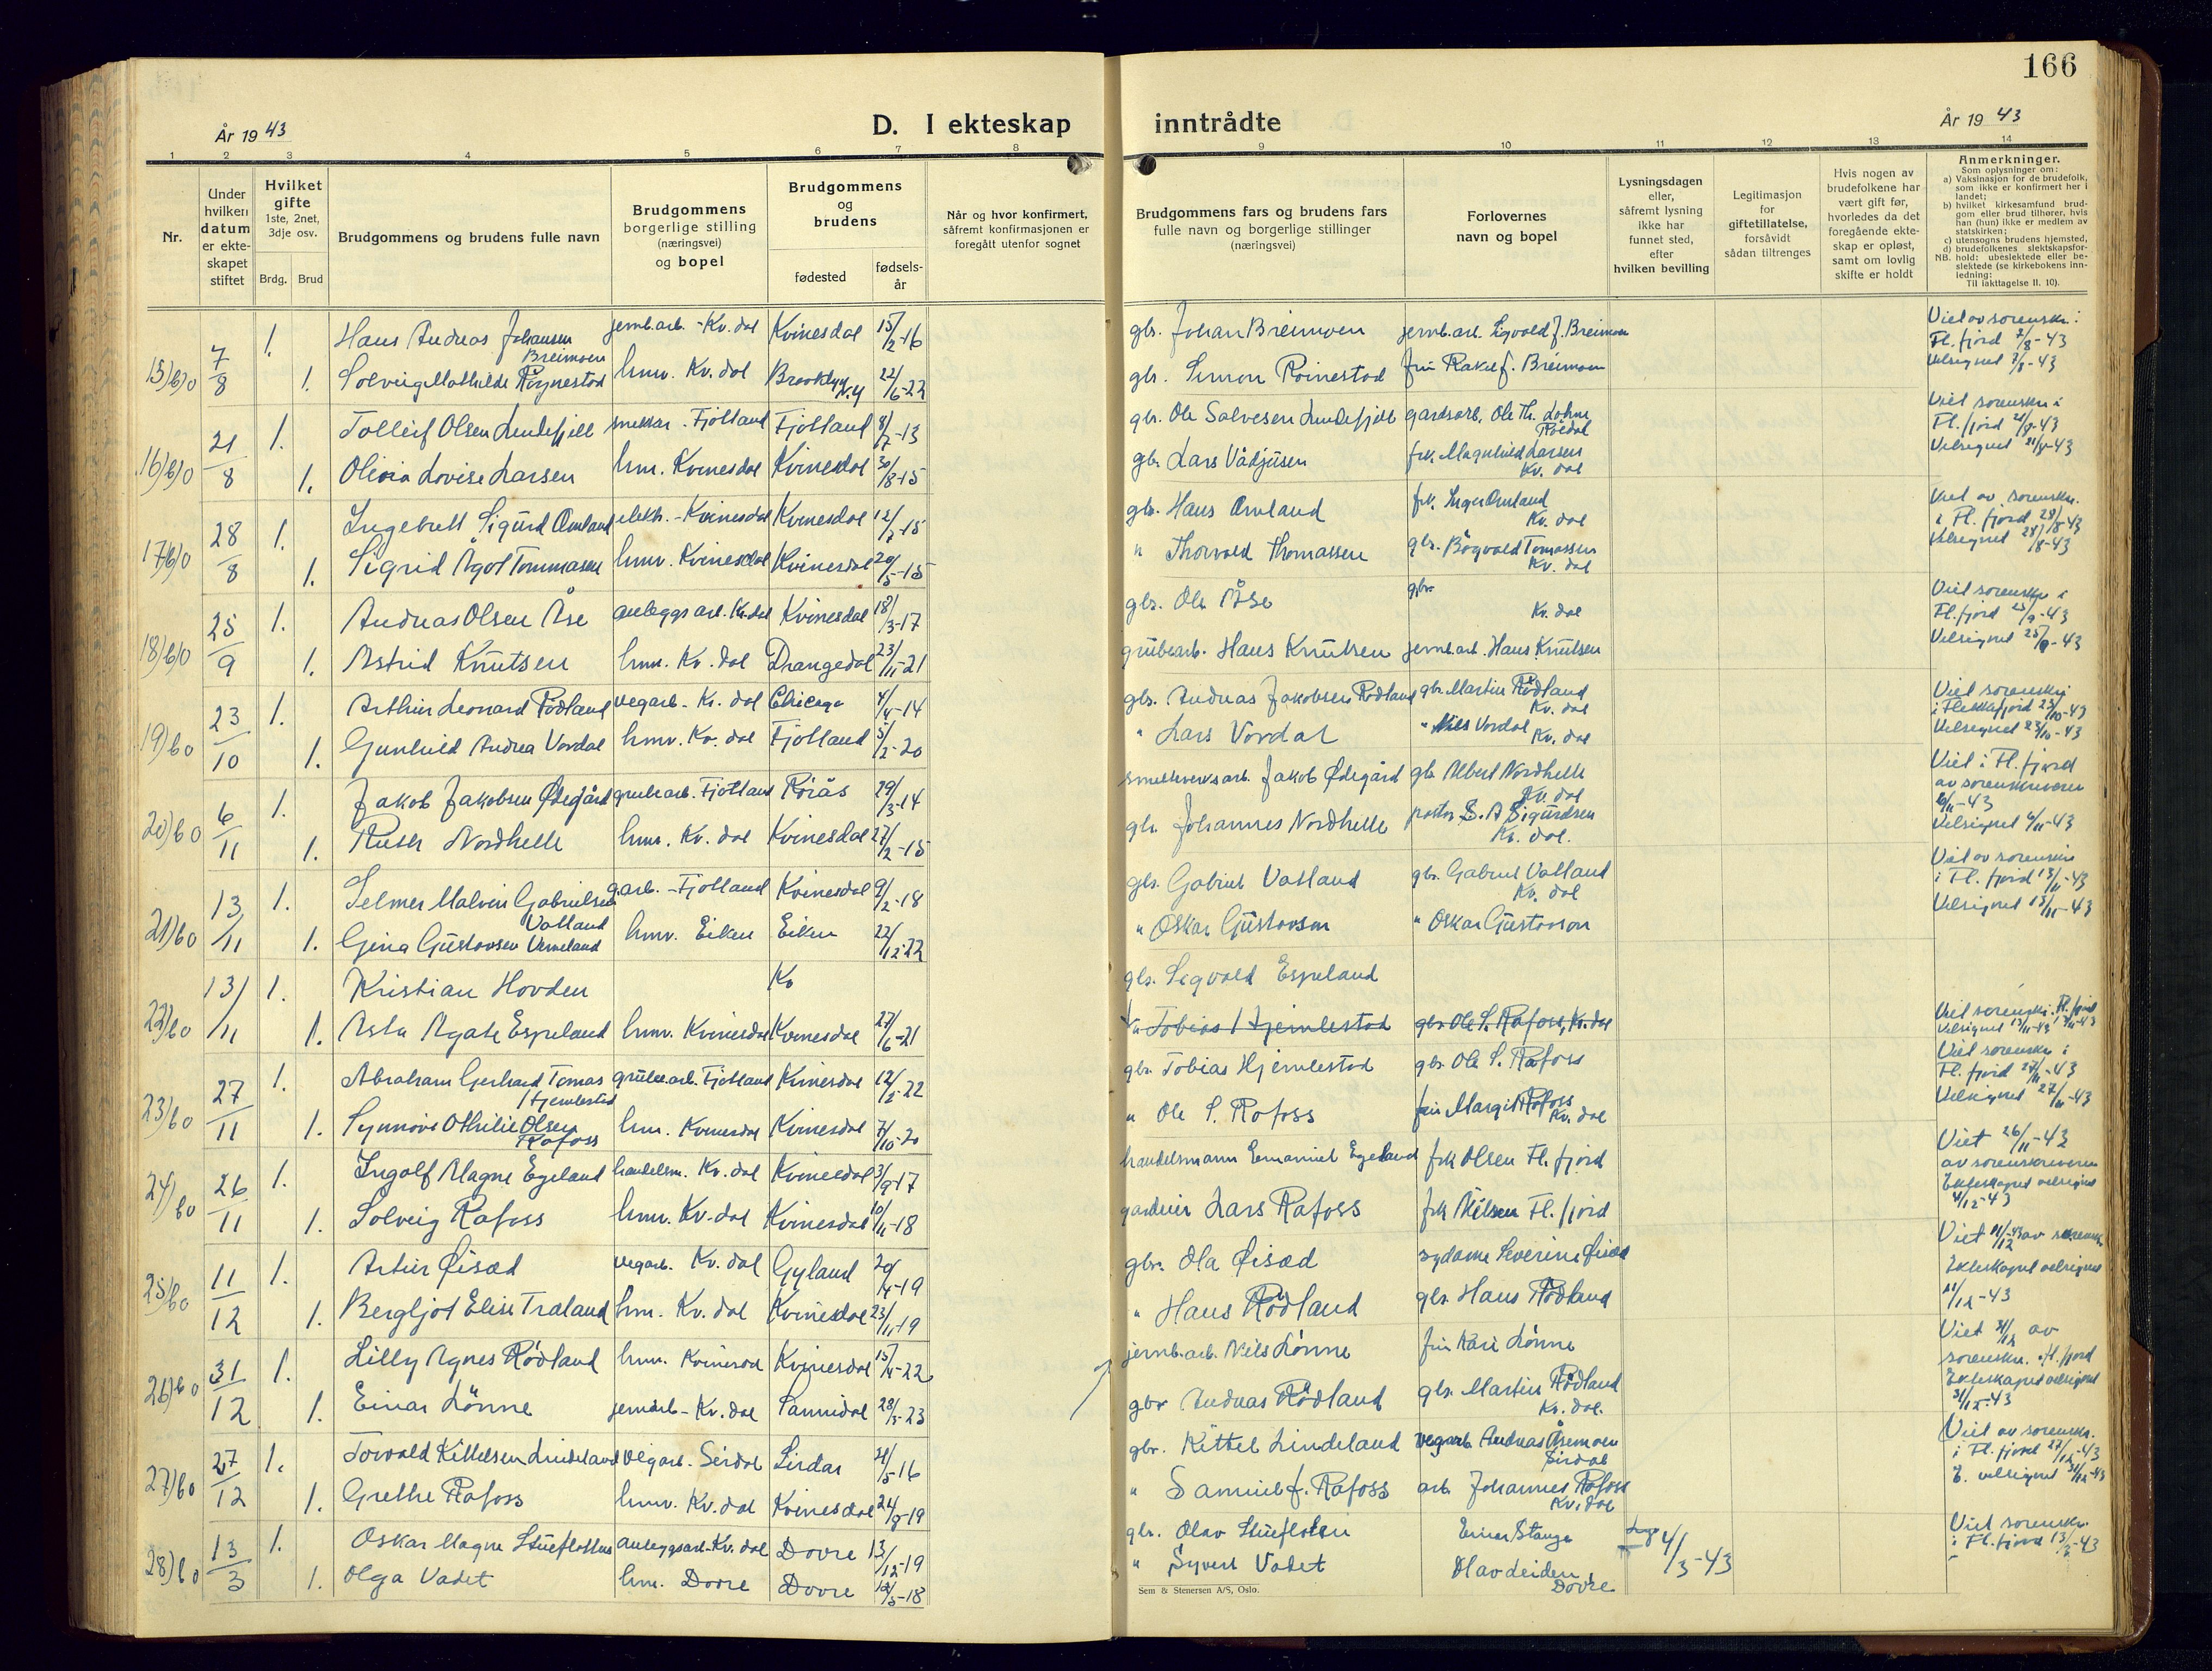 166
År 19 43
D. I ekteskap
inntrådte
År 19 43
1 2 3 4 5 6 7 8 9 10 11 12 13 14
Nr.
Under hvilken datum er ekteskapet stiftet
Hvilket gifte 1ste, 2net, 3dje osv.
Brdg. Brud
Brudgommens og brudens fulle navn
Brudgommens borgerlige stilling (næringsvei) og bopel
Brudgommens og brudens
fødested
fødselsår
Når og hvor konfirmert, såfremt konfirmasjonen er foregått utenfor sognet
Brudgommens fars og brudens fars fulle navn og borgerlige stillinger (næringsvei)
Forlovernes navn og bopel
Lysningsdagen eller, såfremt lysning ikke har funnet sted, efter hvilken bevilling
Legitimasjon for giftetillatelse, forsåvidt sådan tiltrenges
Hvis nogen av brudefolkene har vært gift før, hvorledes da det foregående ekteskap er opløst, samt om lovlig skifte er holdt
Anmerkninger.
Som oplysninger om:
a) Vaksinasjon for de brudefolk, som ikke er konfirmert her i landet;
b) hvilket kirkesamfund brudgom eller brud tilhører, hvis han (hun) ikke er medlem av statskirken;
c) utensogns brudens hjemsted,
d) brudefolkenes slektskapsforhold: ubeslektede eller beslektede (se kirkebokens innledning:
NB. Til iakttagelse II. 10).
15) 7/8 1. Hans Andreas Johansen Breimoen jernb.arb. - Kv.dal Kvinesdal 15/2-16 gbr. Johan Breimoen jernb.arb. Sigvald J. Breimoen Viet av sorenskr. i Fl.fjord 7/8-43
1. Solveig Mathilde Røynestad hmv. Kv.dal Brooklyn N.Y 22/6-22 gbr. Simon Röinestad fru Rakel J. Breimoen Velsignet 7/8-43
16) 21/8 1. Tolleif Olsen Lindefjell Fjotland Fjotland 8/7-13 gbr. Ole Salvesen Lindefjell gardsarb. Ole Th. Viet sorenskr. i Fl.fjord 21/8-43
1. Olivia Lovise Larsen hm. Kvinesdal Kvinesdal 30/8-15 gbr. Lars Vådjusen frk. Magnhild Larsen Kv.dal Velsignet 21/8-43
17) 28/8 1. Ingebrett Sigurd Omland elektr. - Kvinesdal Kvinesdal 12/7-15 gbr. Hans Omland frk. Inger Omland Kv.dal Viet av sorenskr. i Fl.fjord 28/8-43
1. Sigrid Ågot Tommasen hmv. Kvinesdal Kvinesdal 20/5-15 " Thorvald Thomassen gbr. Bågvald Tomassen Kv.dal Velsignet 28/8-43
18) 25/9 1. Andreas Olsen Åse anleggsarb. Kv.dal Kvinesdal 18/3-17 gbr. Ole Åse gbr. Kv.dal Viet sorenskr. i Fl.fjord 25/9-43
1. Astrid Knutsen hm. Kv.dal Drangedal 23/11-21 grubearb. Hans Knutsen jernb.arb. Hans Knutsen Velsignet 25/9-43
19) 23/10 1. Arthur Leonard Rödland vegarb. Kv.dal Chicago 4/4-14 gbr. Andreas Jakobsen Rödland gbr. Martin Rödland Kv.dal Viet sorenskr. i Flekkefjord 23/10-43
1. Gunhild Andrea Vordal hmv. Kv.dal Fjotland 5/2-20 " Lars Vordal " Nils Vordal Kv.dal Velsignet 23/10-43
20) 6/11 1. Jakob Jakobsen Ødegård grubearb. Fjotland Rörås 29/3-14 smelteverksarb. Jakob Ødegård gbr. Albert Nordhelle Kv.dal Viet i Fl.fjord av sorenskriveren 6/11-43
1. Ruth Nordhelle hmv. Kv.dal Kvinesdal 27/2-15 gbr. Johannes Nordhelle pastor S. A. Sigurdsen Kv.dal. Velsignet 6/11-43
21) 13/11 1. Selmer Malvin Gabrielsen Vatland g.arb. - Fjotland Kvinesdal 9/2-18 gbr. Gabriel Vatland gbr. Gabriel Vatland Kv.dal Viet av sorenskr. i Fl.fjord 13/11-43
1. Gina Gustavsen Verneland hmv. Eiken Eiken 22/12-22 " Oskar Gustavson " Oskar Gustavson Velsignet 13/11-43
22) 13/11 1. Kristian Hovden Kv gbr. Sigvald Espeland
1. Asta Agate Espeland hmv. Kvinesdal Kvinesdal 27/6-21 " Tobias Hjemlestad gbr. Ole S. Rafoss, Kv.dal Viet sorenskr. i Fl.fjord 13/11-43 Velsignet 13/11-43
23) 27/11 1. Abraham Gerhard Tomas Hjemlestad grubearb. Fjotland Kvinesdal 12/5-22 gbr. Tobias Hjemlestad gbr. Ole S. Rafoss Viet sorenskr. i Fl.fjord 27/11-43
1. Synnøve Othilie Olsen Rafoss hm. Kvinesdal Kvinesdal 7/10-20 " Ole S. Rafoss fru Margit Rafoss Kv.dal Velsignet 27/11-43
24) 26/11 1. Ingolf Magne Egeland handelsm. Kv.dal Kvinesdal 3/9-17 handelsmann Emanuel Egeland frk Olsen Fl.fjord Viet 26/11-43 av sorenskriveren
1. Solveig Rafoss hmv. Kv.dal Kvinesdal 10/11-18 gardeier Lars Rafoss frk Nilsen Fl.fjord Ekteskapet velsignet 4/12-43
25) 11/12 1. Artur Øisæd vegarb. Kv.dal Gyland 20/4-19 gbr. Ola Øisæd sydame Severine Øisæd Viet 11/12-43 av sorenskr.
1. Bergljot Elise Træland hm. Kv.dal Kvinesdal 23/11-19 " Hans Rödland gbr. Hans Rödland Ekteskapet velsignet 11/12-43
26) 31/12 1. Lilly Agnes Rödland hm. Kvinesdal Kvinesdal 15/4-22 jernb.arb. Nils Lönne fru Kari Lönne Viet 31/12 av sorenskr. i Fl.fjord
1. Einar Lönne jernarb - Kv.dal Sannidal 28/5-23 gbr Andreas Rödland gbr. Martin Rödland Kv.dal. Ekteskapet velsignet 31/12-43
27) 27/12 1. Torvald Kittelsen Lindeland vegarb. Sirdal Sirdal 21/5-16 gbr. Kittel Lindeland vegarb. Andreas Åsemoen Sirdal Viet av sorenskr. i Fl.fjord 27/12-43
1. Grethe Rafoss hmv. Kv.dal Kvinesdal 24/8-19 " Samuel J. Rafoss arb. Johannes Rafoss Kv.dal E. velsignet 31/12-43
28) 13/3 1. Oskar Magne Stuefloten anleggsarb - Kv.dal Dovre 13/12-19 gbr. Olav Stuefloten Einar Stange 4/3-43 Viet sorenskr. i Fl.fjord 13/3-43
1. Olga Vadet hm. Dovre Dovre 12/5-18 " Syvert Vadet Olav Leiden Dovre
Sem & Stenersen A/S, Oslo.